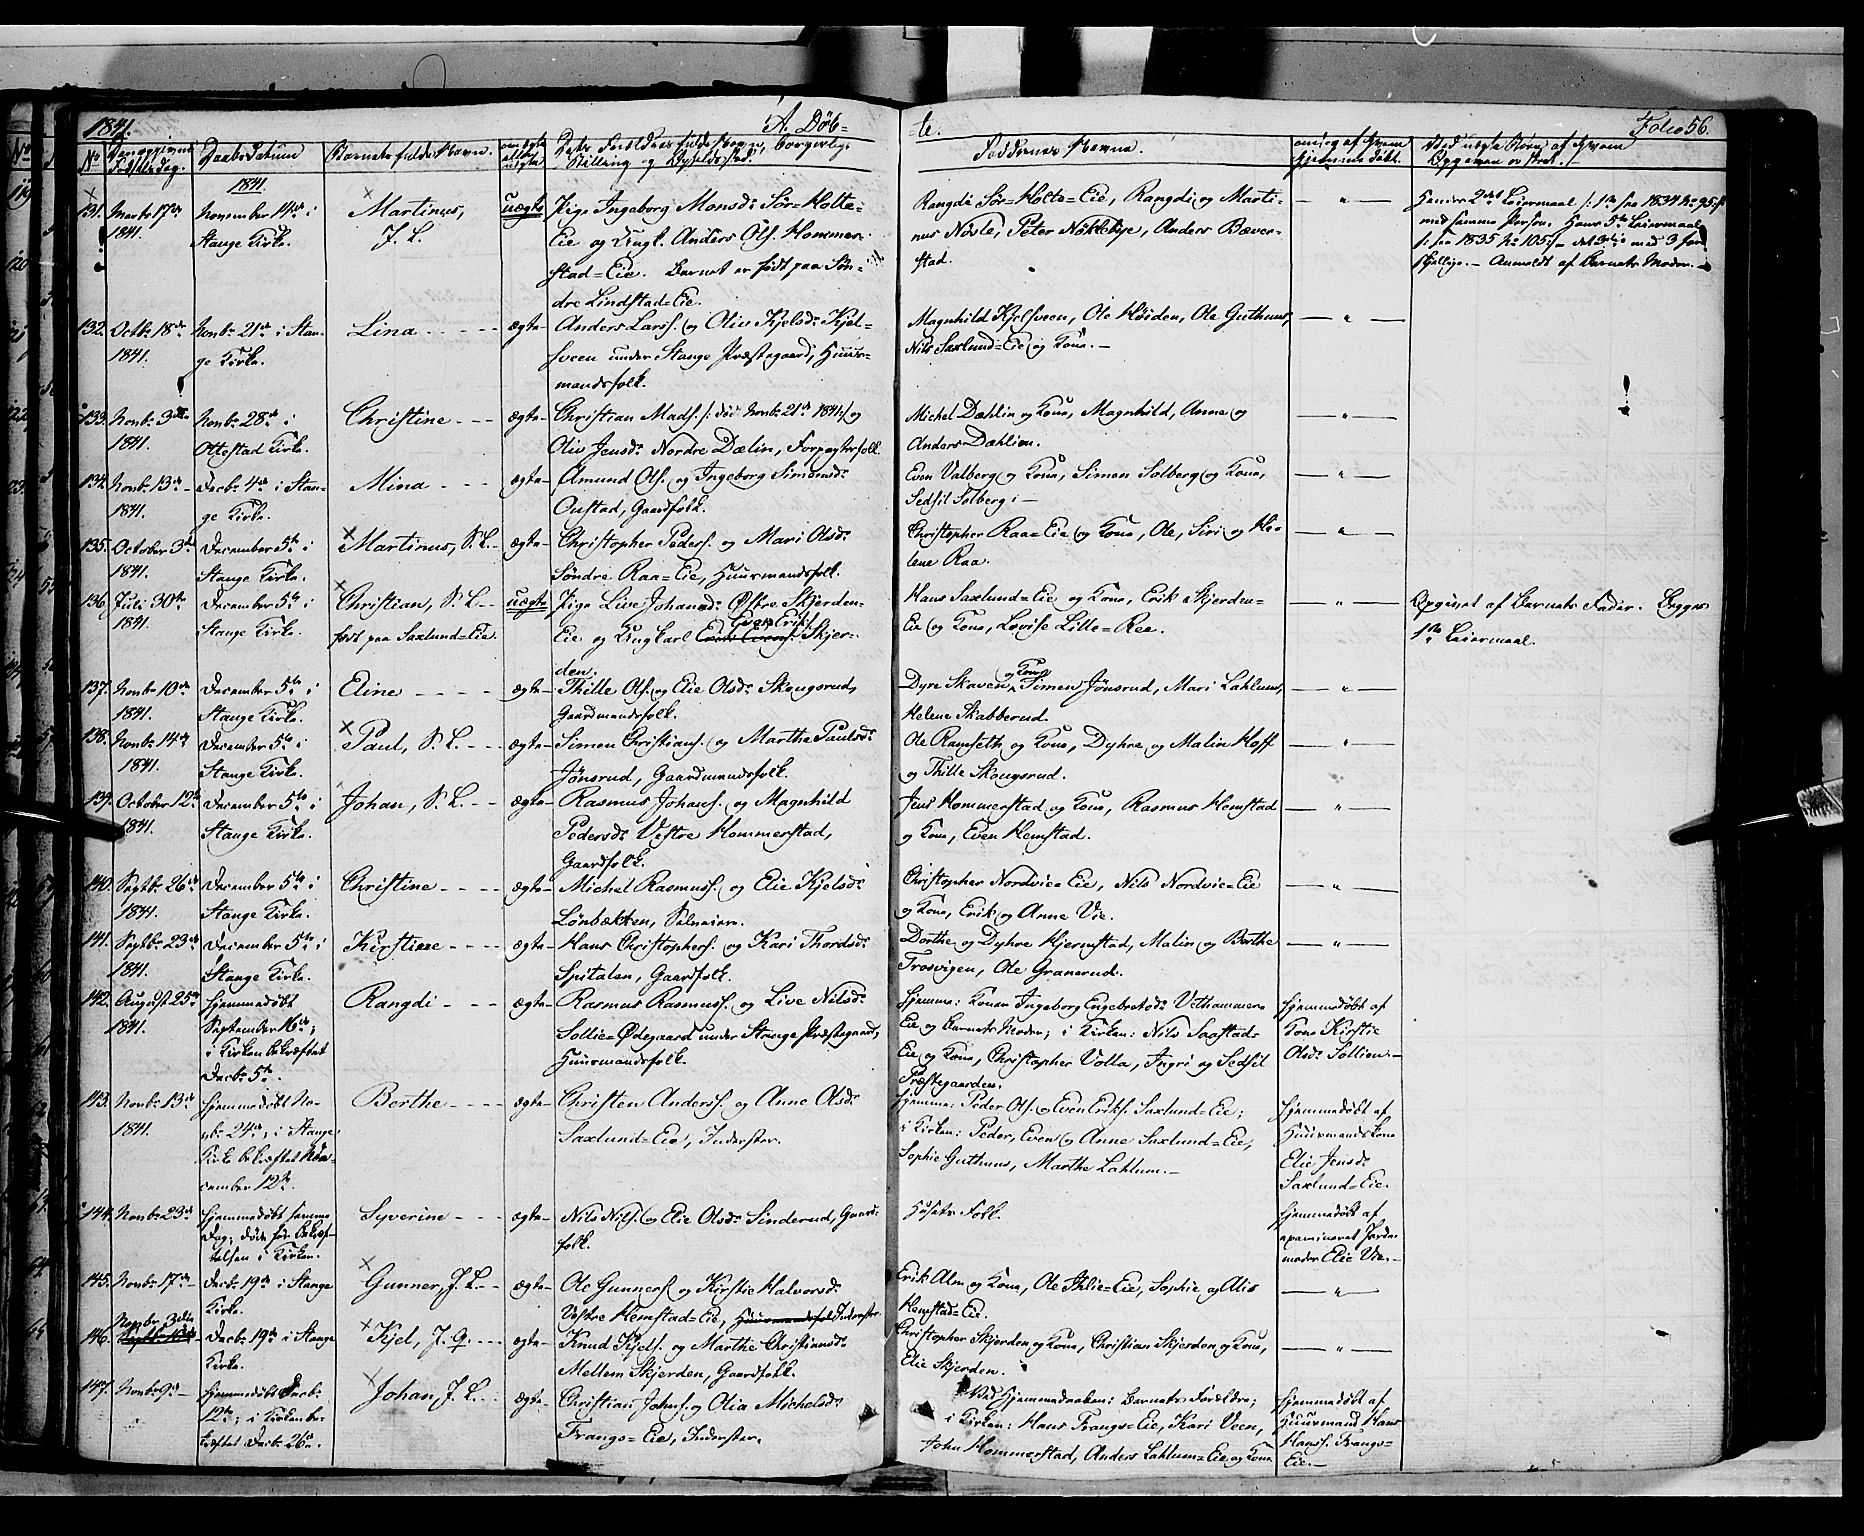 1841.
A. Døb=
te.
Folio 56.
No
Daabsdatum
Barnets fulde Navn.
ægte eller uægte
Stilling og
Faddernes Navne.
1841.
131. Marts 17de 1841.
November 14de i Stange Kirke.
Martinus, J. L.
uægte
Pige Ingeborg Monsd: Sör=Holte=
Eie og Ungk. Anders Ols. Hommer=
stad=Eie. Barnet er født paa Søn=
dre Lindstad=Eie.
Rangdi Sör=Holte=Eie, Rangdi og Marti=
nus Nösle, Peter Nökleby, Anders Bæver=
stad.
132. Octbr 18de 1841.
Novbr 21de i Stange Kirke.
Lina
ægte
Anders Larss. og Oliv Kjelsd: Kjel=
sveen under Stange Præstegaard, Huus=
mandsfolk.
Magnhild Kjelsveen, Ole Höiden, Ole Guthuus,
Nils Saxlund=Eie og Kone.
133. Novbr 3die 1841.
Novbr 28de i Ottestad Kirke.
Christine
ægte
Christian Mads. /: död Novbr 21de 1841 :/ og
Oliv Jensd: Nordre Dælin, Forpagterfolk.
Michel Dæhlin og Kone, Magnhild, Anne og
Anders Dæhlien.
134. Novbr 13de 1841.
Decbr 4de i Stange Kirke.
Mina
ægte
Amund Ols. og Ingeborg Simensd:
Oustad, Gaardfolk.
Even Valberg og Kone, Simen Solberg og Kone,
Sedsil Solberg
135. October 3de 1841.
December 5te i Stange Kirke.
Martinus, S. L.
ægte
Christopher Peders. og Mari Olsd:
Söndre Raa=Eie, Huusmandsfolk.
Christopher Raa=Eie og Kone, Ole, Siri og He=
lene Raa.
136. Juli 30te 1841.
December 5te i Stange Kirke.
Christian, S. L.
født paa Saxlund=Eie
uægte
Pige Live Johansd: Østre Skjerden=
Eie og Ungkarl Even Eriks. Skjer=
den.
Hans Saxlund=Eie og Kone, Erik Skjerden=
Eie og Kone, Lovise Lille=Ree.
Opgivet af Barnets Fader. Begges
1ste Leiermaal.
137. Novbr 10de 1841.
December 5te i Stange Kirke.
Eline
ægte
Thille Ols. og Elie Olsd: Skougsrud,
Gaardmandsfolk.
Dyre Skaven og Kone, Simen Jönsrud, Mari Lahlum,
Helene Skabberud.
138. Novbr 14de 1841.
December 5te i Stange Kirke.
Paul, S. L.
ægte
Simen Christians. og Marthe Paulsd:
Jönsrud, Gaardmandsfolk.
Ole Ramseth og Kone, Dyhre og Malin Hoff
og Thille Skougsrud.
139. October 12te 1841.
December 5te i Stange Kirke.
Johan, S. L.
ægte
Rasmus Johans. og Magnhild
Pedersd: Vestre Hommerstad,
Gaardfolk.
Jens Hommerstad og Kone, Rasmus Hemstad
og Kone, Even Hemstad.
140. Septbr 26de 1841.
December 5te i Stange Kirke.
Christine
ægte
Michel Rasmuss. og Elie Kjelsd:
Lönbækken, Selveiere.
Christopher Nordvie=Eie, Nils Nordvie=Eie
og Kone, Erik og Anne Vie.
141. Septbr 23de 1841.
December 5te i Stange Kirke.
Kirstine
ægte
Hans Christophers. og Kari Thordsd:
Spitalen, Gaardfolk.
Dorthe og Dyhre Hjermstad, Malin og Berthe
Trosvigen, Ole Granerud.
142. August 25de 1841.
Hjemmedöbt
September 16de;
i Kirken bekræftet
Decbr 5te.
Rangdi
ægte
Rasmus Rasmuss. og Live Nilsd:
Sollie=Ødegaard under Stange Præstegaard,
Huusmandsfolk.
Hjemme: Konen Ingeborg Engebretsd: Vethammer=
Eie og Barnets Moder; i Kirken: Nils Saastad=
Eie og Kone, Christopher Volla, Ingri og Sedsil
Præstegaarden.
Hjemmedöbt af
Kone Kirstie
Olsd: Sollien.
143. Novbr 13de 1841.
Hjemmedöbt No=
vbr 24de; i Stange
Kirke bekræftet De=
cember 12te.
Berthe
ægte
Christen Anderss. og Anne Olsd:
Saxlund=Eie, Inderster.
Hjemme: Peder Ols. og Even Eriks. Saxlund=Eie;
i Kirken: Peder, Even og Anne Saxlund=Eie,
Sophie Guthuus, Marthe Lahlum.
Hjemmedöbt af
Huusmandskone
Elie Jensd:
Saxlund=Eie.
144. Novbr 23de
Hjemmedöbt samme
Dag; döde för bekræf=
telsen i Kirken.
Syverine
ægte
Nils Nils. og Elie Olsd: Sinderud, Gaard=
folk.
Husets Folk.
Hjemmedöbt af
examineret Jorde=
moder Elie Vie.
145. Novbr 17de
Decbr 19de i Stange Kirke.
Gunner, J. L.
ægte
Ole Gunners. og Kirstie Halvorsd:
Vestre Hemstad=Eie, Inderster.
Erik Alm og Kone, Ole Ihlie=Eie, Sophie og Alis
Hemstad=Eie.
146. Novbr 3die
Decbr 19de i Stange Kirke.
Kjel, J. G.
ægte
Knud Kjels. og Marthe Christiansd:
Mellem Skjerden, Gaardfolk.
Christopher Skjerden og Kone, Christian Skjerden og Kone,
Elie Skjerden.
147. Novbr 9de
Hjemmedöbt Decbr
12te; i Kirken be=
kræftet Decbr 26de.
Johan, J. L.
ægte
Christian Johns. og Olia Michelsd:
Frangs=Eie, Inderster.
Ved Hjemmedaaben: Barnets Forældre;
i Kirken: Hans Frangs=Eie, Kari Veen,
John Hommerstad, Anders Lahlum=Eie og Kone
Hjemmedöbt af
Huusmand Hans
Hanss. Frangs=
Eie.